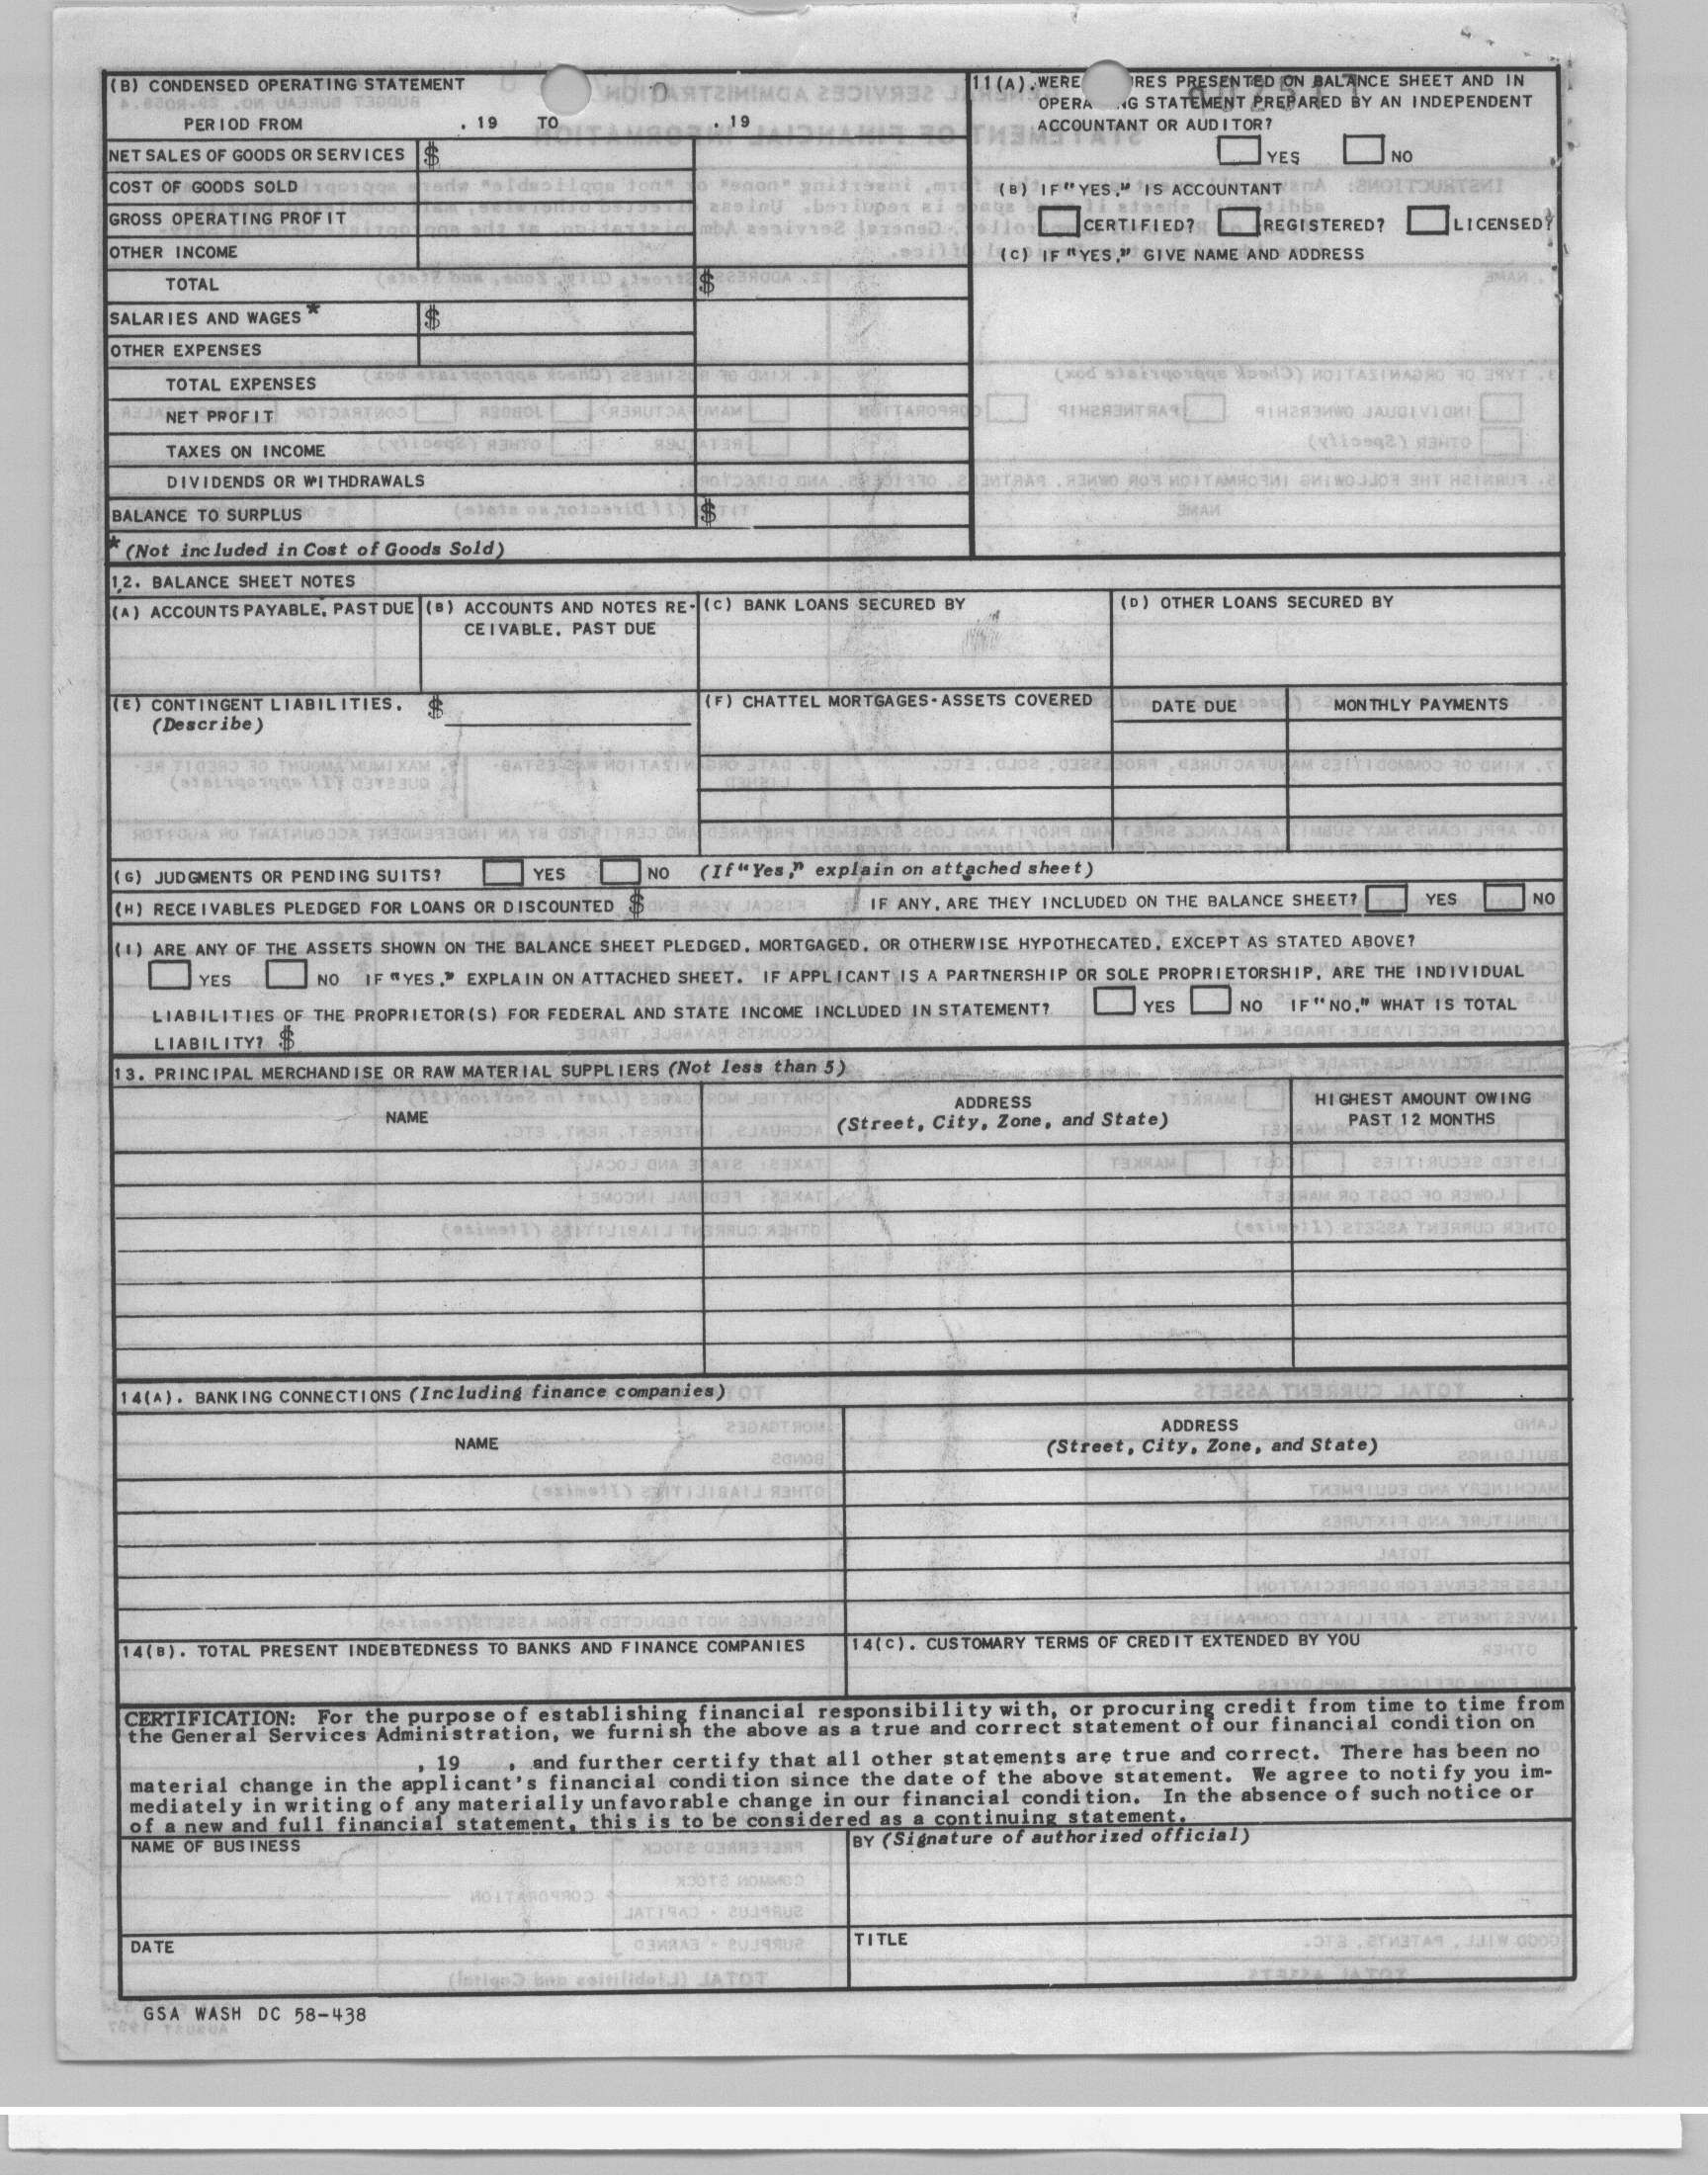 (B) CONDENSED OPERATING STATEMENT
PERIOD FROM , 19 TO , 19
NET SALES OF GOODS OR SERVICES $
COST OF GOODS SOLD
GROSS OPERATING PROFIT
OTHER INCOME
TOTAL $
SALARIES AND WAGES * $
OTHER EXPENSES
TOTAL EXPENSES
NET PROFIT
TAXES ON INCOME
DIVIDENDS OR WITHDRAWALS
BALANCE TO SURPLUS $
* (Not included in Cost of Goods Sold)
11(A). WERE PRESENTED ON BALANCE SHEET AND IN
STATEMENT PREPARED BY AN INDEPENDENT
ACCOUNTANT OR AUDITOR?
YES NO
(B) IF "YES," IS ACCOUNTANT
CERTIFIED? REGISTERED? LICENSED?
(C) IF "YES," GIVE NAME AND ADDRESS
12. BALANCE SHEET NOTES
(A) ACCOUNTS PAYABLE, PAST DUE
(B) ACCOUNTS AND NOTES RE-
CEIVABLE, PAST DUE
(C) BANK LOANS SECURED BY
(D) OTHER LOANS SECURED BY
(E) CONTINGENT LIABILITIES. $
(Describe)
(F) CHATTEL MORTGAGES-ASSETS COVERED
DATE DUE
MONTHLY PAYMENTS
(G) JUDGMENTS OR PENDING SUITS? YES NO (If "Yes," explain on attached sheet)
(H) RECEIVABLES PLEDGED FOR LOANS OR DISCOUNTED $ IF ANY, ARE THEY INCLUDED ON THE BALANCE SHEET? YES NO
(I) ARE ANY OF THE ASSETS SHOWN ON THE BALANCE SHEET PLEDGED, MORTGAGED, OR OTHERWISE HYPOTHECATED, EXCEPT AS STATED ABOVE?
YES NO IF "YES," EXPLAIN ON ATTACHED SHEET. IF APPLICANT IS A PARTNERSHIP OR SOLE PROPRIETORSHIP, ARE THE INDIVIDUAL
LIABILITIES OF THE PROPRIETOR(S) FOR FEDERAL AND STATE INCOME INCLUDED IN STATEMENT? YES NO IF "NO," WHAT IS TOTAL
LIABILITY? $
13. PRINCIPAL MERCHANDISE OR RAW MATERIAL SUPPLIERS (Not less than 5)
NAME
ADDRESS
(Street, City, Zone, and State)
HIGHEST AMOUNT OWING
PAST 12 MONTHS
14(A). BANKING CONNECTIONS (Including finance companies)
NAME
ADDRESS
(Street, City, Zone, and State)
14(B). TOTAL PRESENT INDEBTEDNESS TO BANKS AND FINANCE COMPANIES
14(C). CUSTOMARY TERMS OF CREDIT EXTENDED BY YOU
CERTIFICATION: For the purpose of establishing financial responsibility with, or procuring credit from time to time from
the General Services Administration, we furnish the above as a true and correct statement of our financial condition on
, 19 , and further certify that all other statements are true and correct. There has been no
material change in the applicant's financial condition since the date of the above statement. We agree to notify you im-
mediately in writing of any materially unfavorable change in our financial condition. In the absence of such notice or
of a new and full financial statement, this is to be considered as a continuing statement.
NAME OF BUSINESS
BY (Signature of authorized official)
DATE
TITLE
GSA WASH DC 58-438